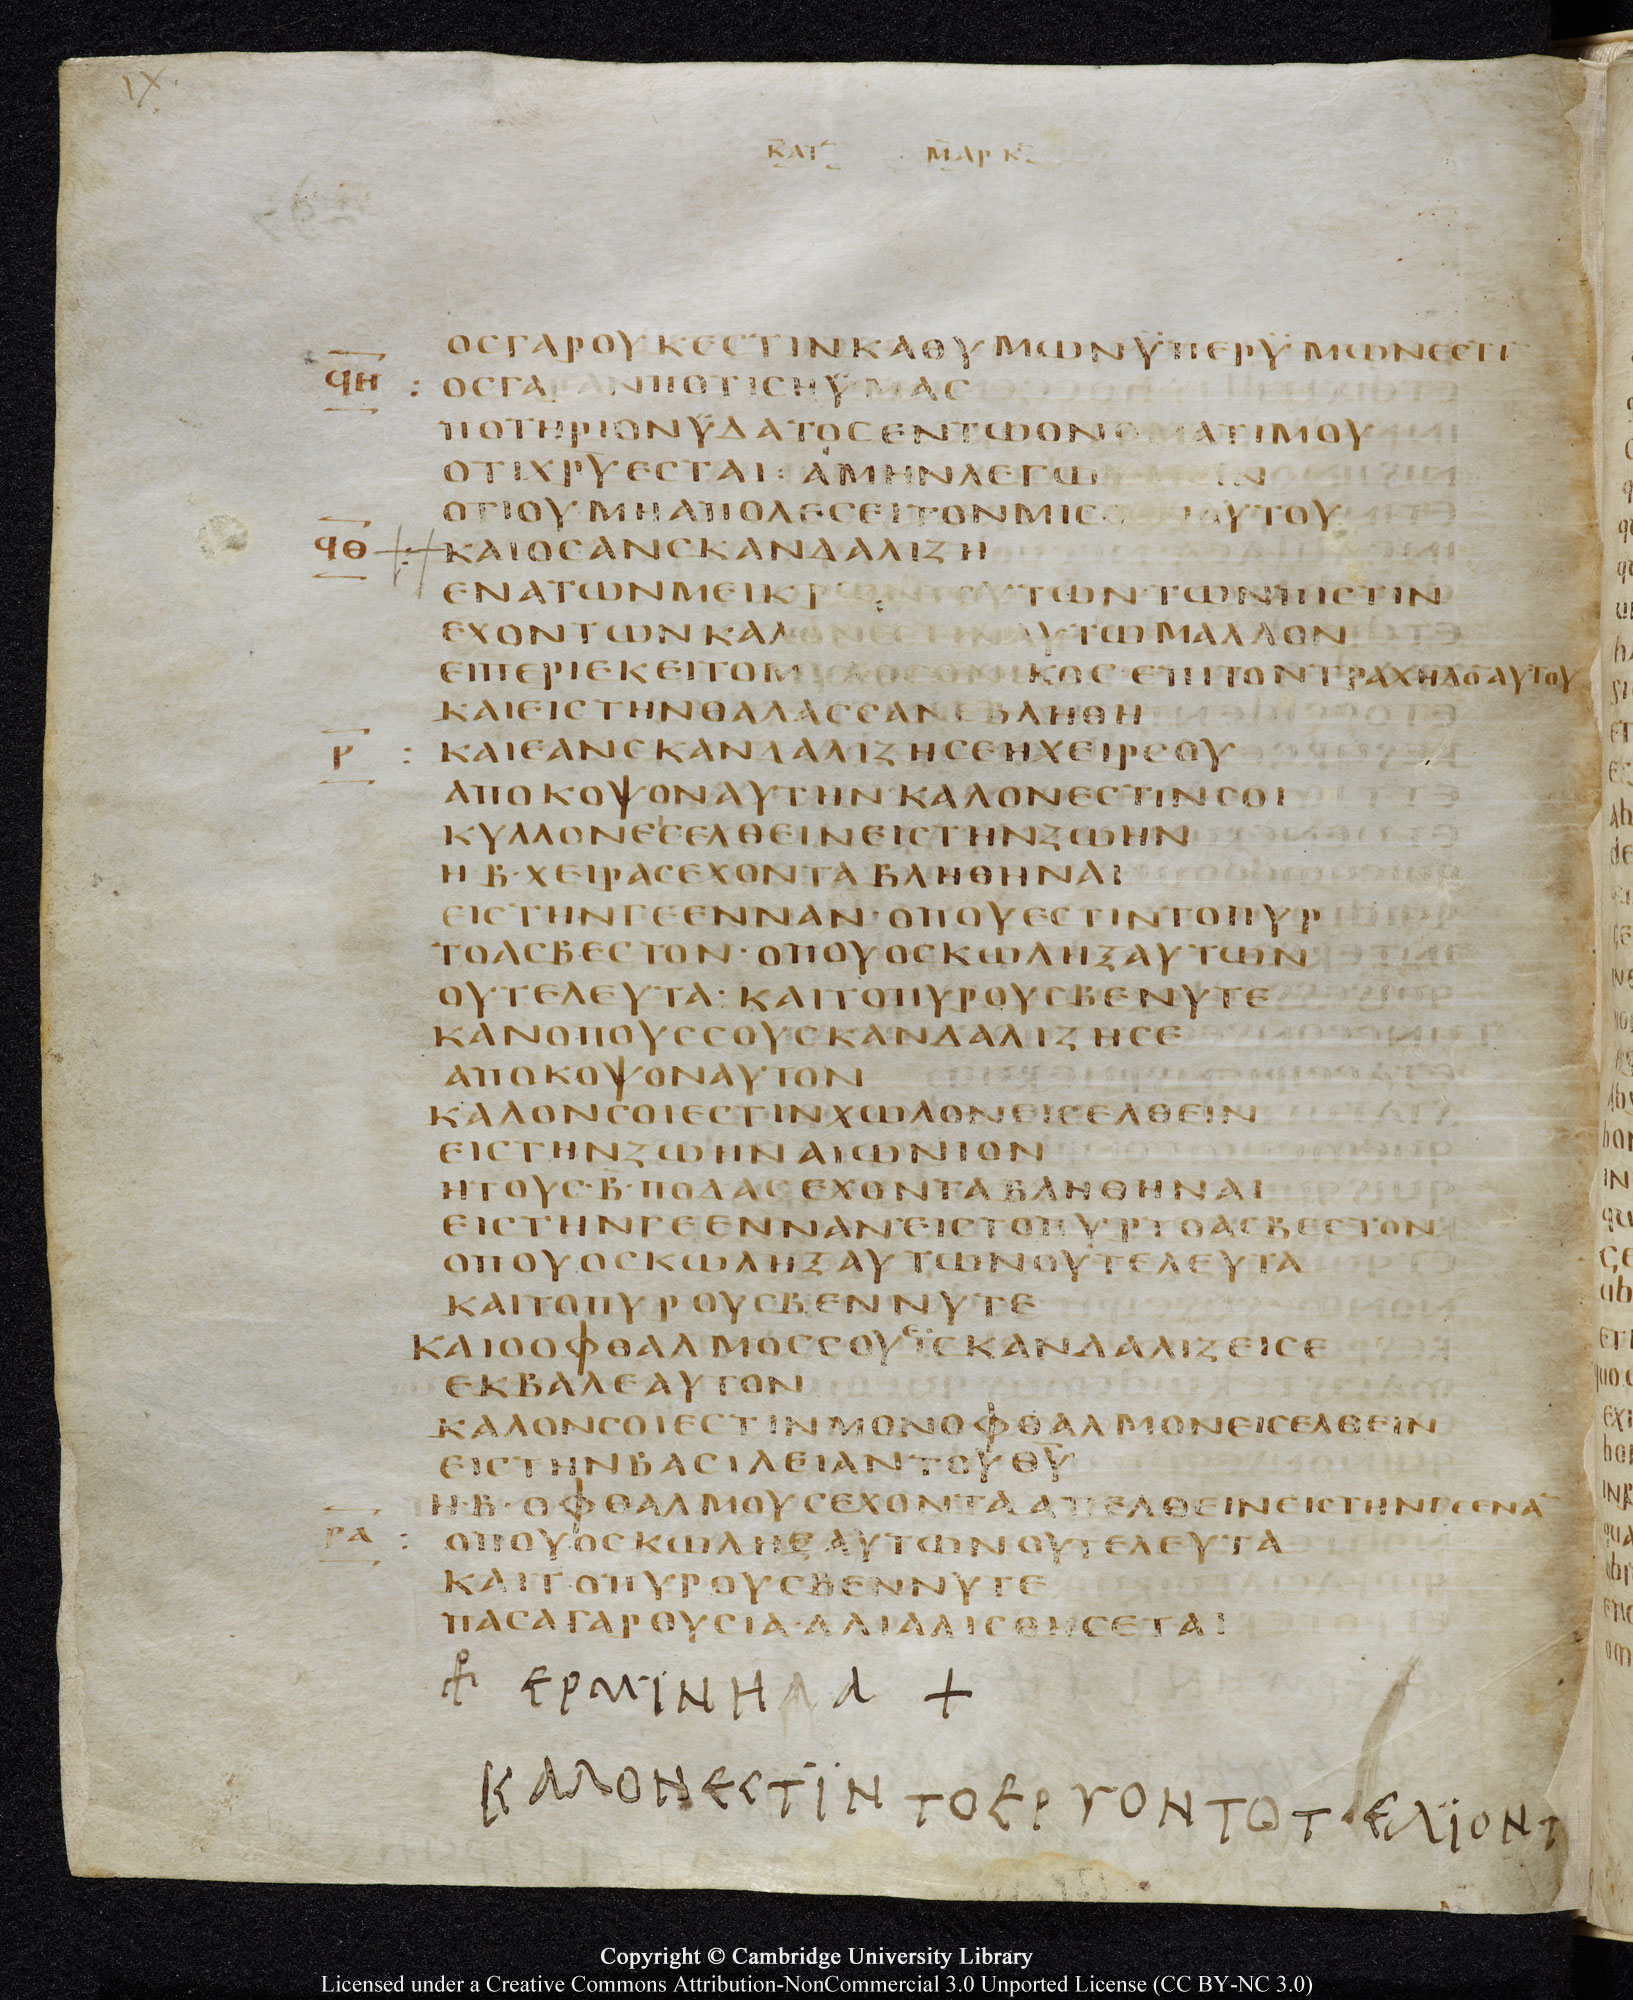 IX.
ΚΑΤ ΜΑΡΚ
ΟСΓΑΡΟΥΚΕСΤΙΝΚΑΘΥΜωΝΫΠΕΡΫΜωΝΕСΤΙ
ϤΗ : ΟСΓΑΡΑΝΠΟΤΙСΗΫΜΑС
ΠΟΤΗΡΙΟΝΫΔΑΤΟСΕΝΤωΟΝΟΜΑΤΙΜΟΥ
ΟΤΙΧΡΥΕСΤΑΙ : ΑΜΗΝΛΕΓω ΙΝ
ΟΤΙΟΥΜΗΑΠΟΛΕСΕΙΤΟΝΜΙС ΑΥΤΟΥ
ϤΘ : ΚΑΙΟСΑΝСΚΑΝΔΑΛΙΖΗ
ΕΝΑΤωΝΜΕΙΚΡωΝΤΟΥΤωΝ·ΤωΝΠΙСΤΙΝ
ΕΧΟΝΤωΝΚΑΛΟΝΕСΤΙΝΑΥΤωΜΑΛΛΟΝ
ΕΙΠΕΡΙΕΚΕΙΤΟΜΥΛΟСΟΝΙΚΟС·ΕΠΙΤΟΝΤΡΑΧΗΛΟ̅ΑΥΤΟΥ
ΚΑΙΕΙСΤΗΝΘΑΛΑССΑΝΕΒΛΗΘΗ
Ρ : ΚΑΙΕΑΝСΚΑΝΔΑΛΙΖΗСΕΗΧΕΙΡСΟΥ
ΑΠΟΚΟΨΟΝΑΥΤΗΝ·ΚΑΛΟΝΕСΤΙΝСΟΙ
ΚΥΛΛΟΝΕΙСΕΛΘΕΙΝΕΙСΤΗΝΖωΗΝ
Η·Β·ΧΕΙΡΑСΕΧΟΝΤΑΒΛΗΘΗΝΑΙ
ΕΙСΤΗΝΓΕΕΝΝΑΝ·ΟΠΟΥΕСΤΙΝΤΟΠΥΡ
ΤΟΑСΒΕСΤΟΝ·ΟΠΟΥΟСΚωΛΗΞΑΥΤωΝ
ΟΥΤΕΛΕΥΤΑ·ΚΑΙΤΟΠΥΡΟΥСΒΕΝΥΤΕ
ΚΑΝΟΠΟΥССΟΥСΚΑΝΔΑΛΙΖΗСΕ
ΑΠΟΚΟΨΟΝΑΥΤΟΝ
ΚΑΛΟΝСΟΙΕСΤΙΝΧωΛΟΝΕΙСΕΛΘΕΙΝ
ΕΙСΤΗΝΖωΗΝΑΙωΝΙΟΝ
ΗΤΟΥС·Β·ΠΟΔΑСΕΧΟΝΤΑΒΛΗΘΗΝΑΙ
ΕΙСΤΗΝΓΕΕΝΝΑΝΕΙСΤΟΠΥΡΤΟΑСΒΕСΤΟΝ
ΟΠΟΥΟСΚωΛΗΞΑΥΤωΝΟΥΤΕΛΕΥΤΑ
ΚΑΙΤΟΠΥΡΟΥСΒΕΝΝΥΤΕ
ΚΑΙΟΟΦΘΑΛΜΟССΟΥΕΙСΚΑΝΔΑΛΙΖΕΙСΕ
ΕΚΒΑΛΕΑΥΤΟΝ
ΚΑΛΟΝСΟΙΕСΤΙΝΜΟΝΟΦΘΑΛΜΟΝΕΙСΕΛΘΕΙΝ
ΕΙСΤΗΝΒΑСΙΛΕΙΑΝΤΟΥΘΥ
Η·Β·ΟΦΘΑΛΜΟΥСΕΧΟΝΤΑΑΠΕΛΘΕΙΝΕΙСΤΗΝΓΕΕΝΑ̅
ΡΑ : ΟΠΟΥΟСΚωΛΗΞΑΥΤωΝΟΥΤΕΛΕΥΤΑ
ΚΑΙΤΟΠΥΡΟΥСΒΕΝΝΥΤΕ
ΠΑСΑΓΑΡΘΥСΙΑ·ΑΛΙΑΛΙСΘΗСΕΤΑΙ
ΕΡΜΙΝΗΑΑ +
ΚΑΛΟΝΕСΤΙΝ ΤΟΕΡΓΟΝ ΤΟΤΕΛΙΟΝΤ
Copyright © Cambridge University Library
Licensed under a Creative Commons Attribution-NonCommercial 3.0 Unported License (CC BY-NC 3.0)